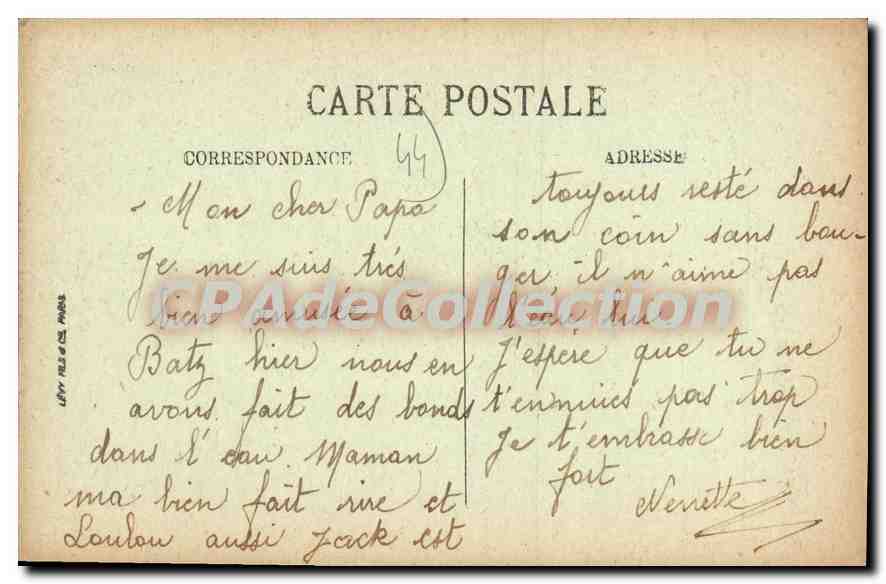 CARTE POSTALE
CORRESPONDANCE
44
ADRESSE
Mon cher Papa
Je me suis très
bien amusée à
Batz hier nous en
avons fait des bonds
dans l'eau. Maman
ma bien fait rire et
Loulou aussi Jack est
toujours resté dans
son coin sans bou-
ger il n'aime pas
l'eau lui
J'espère que tu ne
t'ennuies pas trop
Je t'embrasse bien
fort
Nenette
LÉVY FILS & Cie, PARIS
CPAdeCollection.com